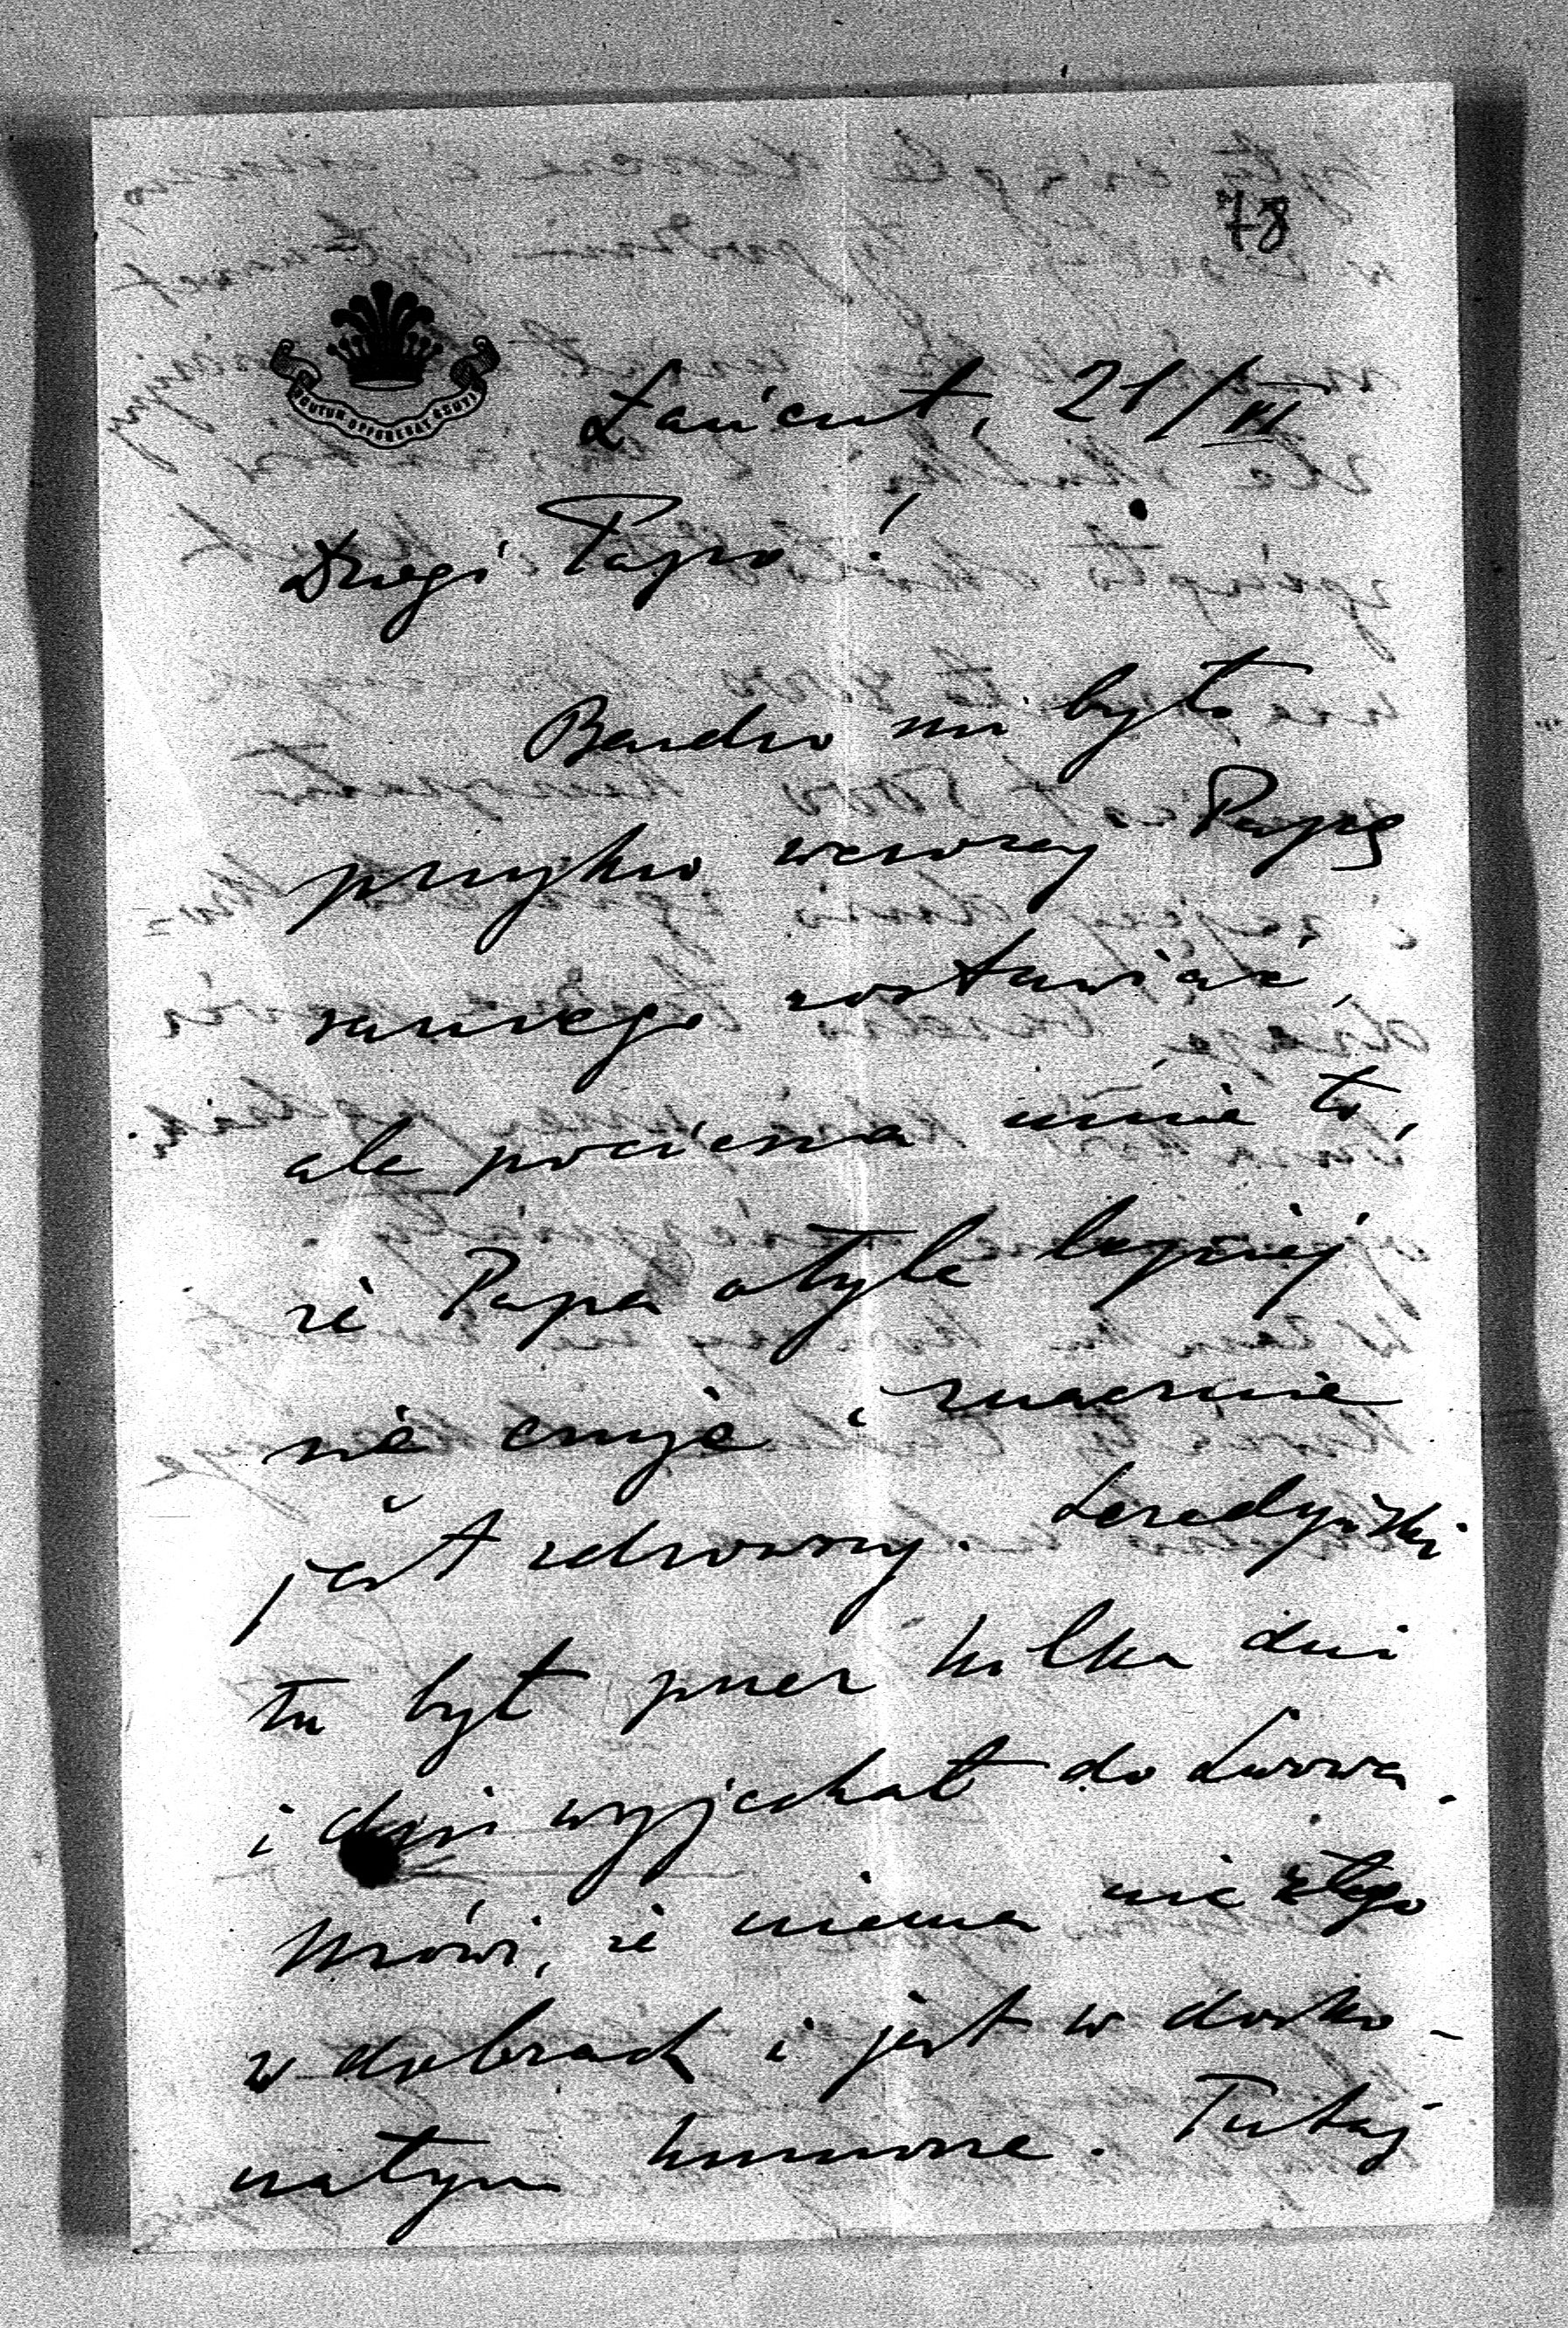 78
BRUTUM OPPONERAT
Łańcut, 21/VI
Drogi Papo!
Bardzo mi było
przykro wczoraj Papę
samego zostawiać,
ale pociesza mnie to,
że Papa o tyle lepiej
się czuje i znacznie
jest zdrowszy.
tu był przez kilka dni
i dziś wyjechał do Lwowa.
Mówi, że niema nic złego
w dobrach i jest w dosko-
nałym humorze. Tutaj